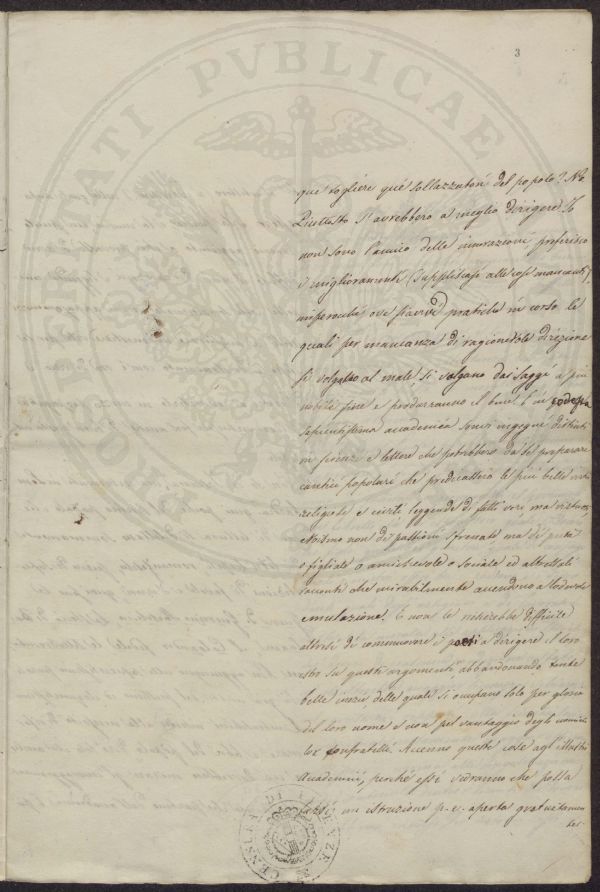 3
que togliere que' sollazzatori del popolo? No
Piuttosto s'avrebbero a meglio dirigere. Io
non sono l'amico delle innovazioni preferisco
i miglioramenti (supplicasi alle cose mancanti),
imperocchè ove sianvi pratiche in corso le
quali per mancanza di ragionevole direzione
si volgano al male, si volgano dai saggi a più
nobile fine e produrranno il bene. E in codesta
sapientissima accademia sonvi ingegni distinti
in scienze e lettere che potrebbero da se preparare
cantici popolari che predicattero le più belle virtù
religiose e civili, leggende di fatti veri ma virtuosi
non di passioni sfrenate ma di pietà
o figliale o amichevole o sociale ed altrettali
racconti che mirabilmente accendono a lodevole
emulazione. E non le riescirebbe difficile
altresì di commuovere i poeti a dirigere il loro
estro su questi argomenti abbandonando tante
belle inezie delle quali si occupano solo per gloria
del loro nome e non pel vantaggio degli uomini
lor confratelli. Accenno queste cose agl'illustri
Accademici, perchè essi vedranno che possa
farsi; un istruzione p. e. aperta gratuitamen
te
PROSPERITATI PVBLICAE